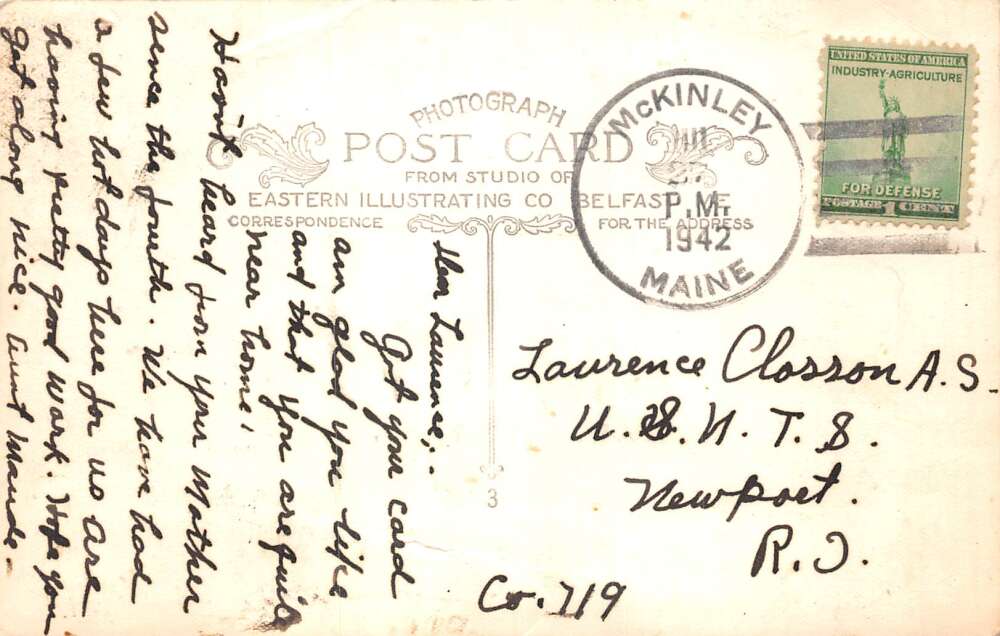 PHOTOGRAPH
POST CARD
FROM STUDIO OF
EASTERN ILLUSTRATING CO BELFAST ME
CORRESPONDENCE
FOR THE ADDRESS
3
McKINLEY
P.M.
1942
MAINE
UNITED STATES OF AMERICA
INDUSTRY-AGRICULTURE
FOR DEFENSE
POSTAGE 1 CENT
Dear Laurence;-
Got your card
am glad you like
and that you are quite
near home,
Haven't heard from your Mother
since the fourth. We have had
a few hot days here for us are
having pretty good work. Hope you
get along nice. Aunt Maude.
Laurence Closson A.S.
U.S.N.T.S.
Newport.
R.I.
Co. 719